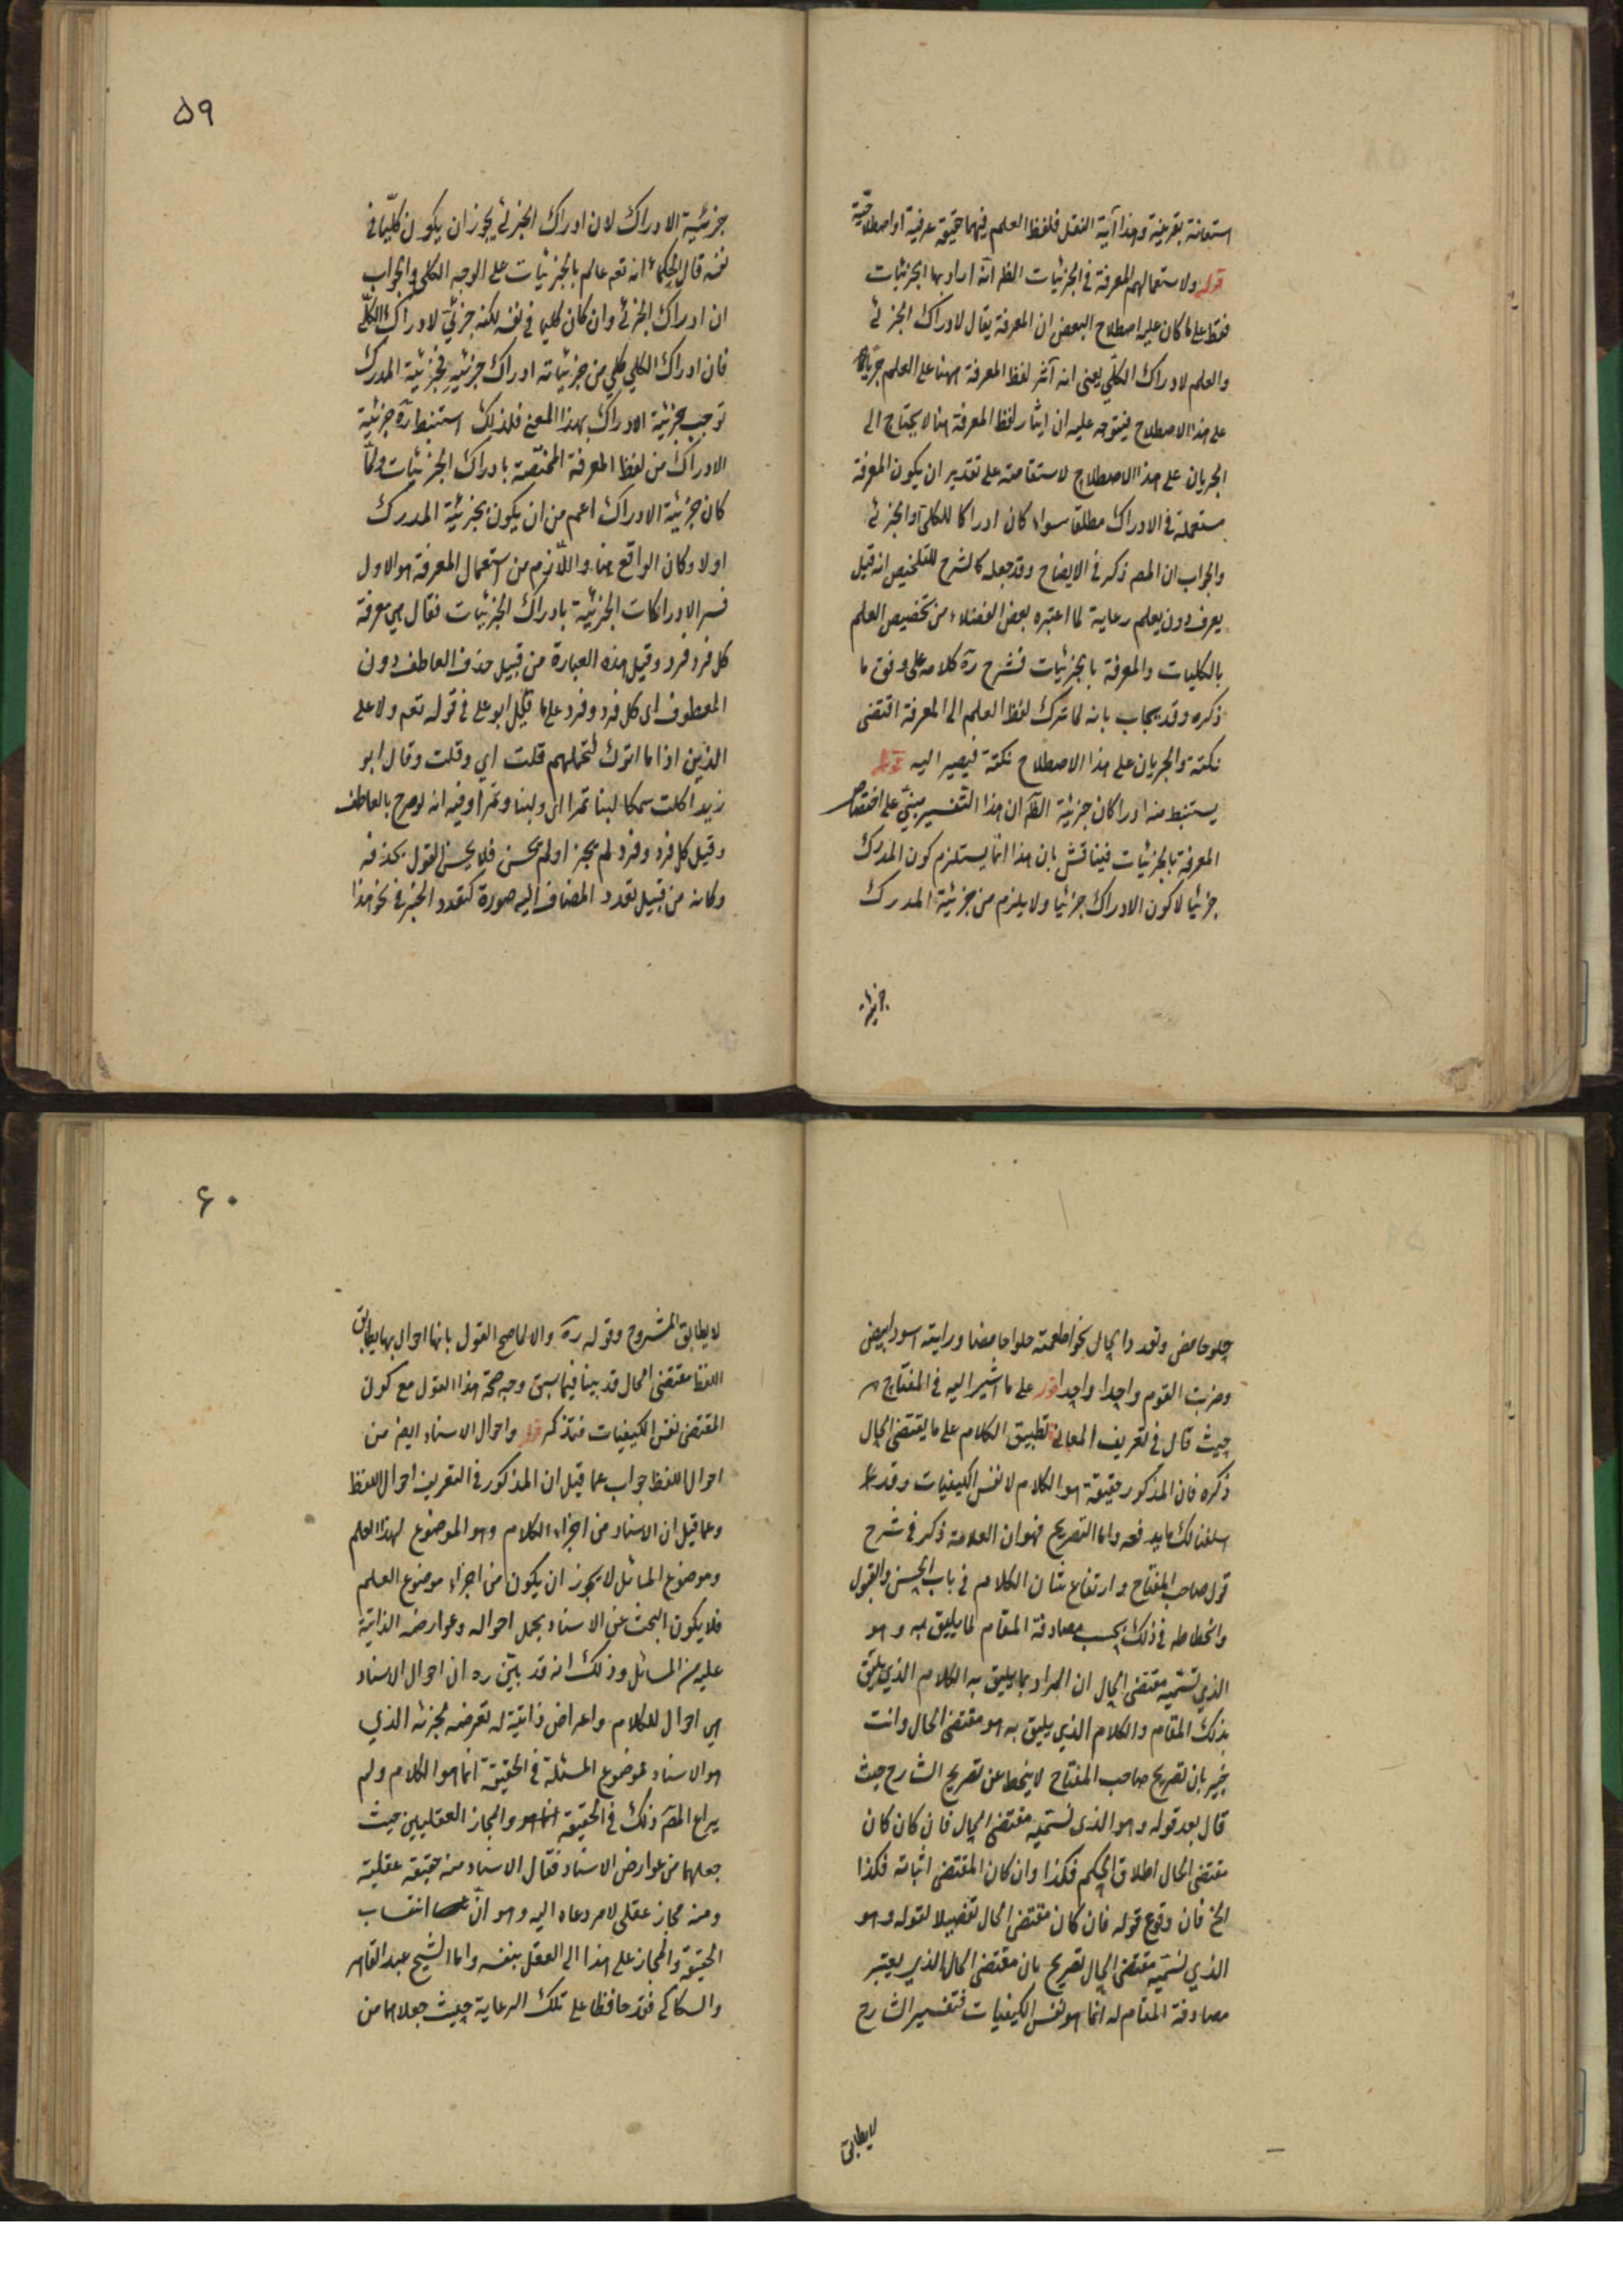 استعانة بقرينة وهذا آية النقل فلفظ العلم فيهما حقيقة عرفية او اصطلاحية
قوله ولاستعمالهم المعرفة في الجزئيات الظ انه اراد بها الجزئيات
فقط على ما كان عليه اصطلاح البعض ان المعرفة يقال لادراك الجزئي
والعلم لادراك الكلي يعني انه آثر لفظ المعرفة ههنا على العلم جريانا
على هذا الاصطلاح فيتوجه عليه ان ايثار لفظ المعرفة هنا لا يحتاج الى
الجريان على هذا الاصطلاح لاستقامته على تقدير ان يكون المعرفة
مستعملة في الادراك مطلقا سواء كان ادراكا للكلي او الجزئي
والجواب ان المص ذكر في الايضاح وقد جعله كالشرح للتلخيص انه قيل
يعرف دون يعلم رعاية لما اعتبره بعض الفضلاء من تخصيص العلم
بالكليات والمعرفة بالجزئيات فشرح ره كلامه على وفق ما
ذكره وقد يجاب بانه لما ترك لفظ العلم الى المعرفة اقتضى
نكتة والجريان على هذا الاصطلاح نكتة فيصير اليه قوله
يستنبط منه ادراكات جزئية الظ ان هذا التفسير مبني على اختصاص
المعرفة بالجزئيات فيناقش بان هذا انما يستلزم كون المدرك
جزئيا لا كون الادراك جزئيا ولا يلزم من جزئية المدرك
جزئية
۵۹
جزئية الادراك لان ادراك الجزئي يجوز ان يكون كليا في
نفسه قال الحكماء انه تعه عالم بالجزئيات على الوجه الكلي والجواب
ان ادراك الجزئي وان كان كليا في نفسه لكنه جزئي لادراك الكلي
فان ادراك الكلي كلي من جزئياته ادراك جزئيه فجزئية المدرك
توجب جزئية الادراك بهذا المعنى فلذلك استنبط ره جزئية
الادراك من لفظ المعرفة المختصة بادراك الجزئيات ولما
كان جزئية الادراك اعم من ان يكون بجزئية المدرك
اولا وكان الواقع هنا واللازم من استعمال المعرفة هو الاول
فسر الادراكات الجزئية بادراك الجزئيات فقال هي معرفة
كل فرد فرد وقيل هذه العبارة من قبيل حذف العاطف دون
المعطوف اى كل فرد وفرد على ما قيل ابو علي في قوله تعه ولا على
الذين اذا ما اتوك لتحملهم قلت اي وقلت وقال ابو
زيد اكلت سمكا لبنا تمرا اى ولبنا وتمرا وفيه انه لو صرح بالعاطف
وقيل كل فرد وفرد لم يجز او لم يحسن فلا يحسن القول بحذفه
وكانه من قبيل تعدد المضاف اليه صورة كتعدد الخبر في نحو هذا
حلو حامض وتعدد الحال نحو اطعمته حلوا حامضا ورايته اسود ابيض
وضربت القوم واحدا واحدا قوله على ما اشير اليه في المفتاح
حيث قال في تعريف المعاني تطبيق الكلام على ما يقتضي الحال
ذكره فان المذكور حقيقة هو الكلام لا نفس الكيفيات وقد
اسلفنا لك ما يدفعه واما التصريح فهو ان العلامة ذكر في شرح
قول صاحب المفتاح وارتفاع شان الكلام في باب الحسن والقبول
وانحطاطه في ذلك بحسب مصادفة المقام لما يليق به وهو
الذي نسميه مقتضى الحال ان المراد بما يليق به الكلام الذي يليق
بذلك المقام والكلام الذي يليق به هو مقتضى الحال وانت
خبير بان تصريح صاحب المفتاح لا ينحط عن تصريح الشارح حيث
قال بعد قوله وهو الذي نسميه مقتضى الحال فان كان كان
مقتضى الحال اطلاق الحكم فكذا وان كان المقتضى اثباته فكذا
الخ فان وقوع قوله فان كان مقتضى الحال تفصيلا لقوله وهو
الذي نسميه مقتضى الحال تصريح بان مقتضى الحال الذي يعتبر
مصادفة المقام له انما هو نفس الكيفيات فتفسير الشارح
لا يطابق
۶۰
لا يطابق المشروح وقوله ره والا لما صح القول بانها احوال بها يطابق
اللفظ مقتضى الحال قد بينا فيما سبق وجه صحة هذا القول مع كون
المقتضى نفس الكيفيات فتذكر قوله واحوال الاسناد ايض من
احوال اللفظ جواب عما قيل ان المذكور في التعريف احوال اللفظ
وعما قيل ان الاسناد من اجزاء الكلام وهو الموضوع لهذا العلم
وموضوع المسائل لا يجوز ان يكون من اجزاء موضوع العلم
فلا يكون البحث عن الاسناد بحمل احواله وعوارضه الذاتية
عليه من المسائل وذلك انه قد بين ره ان احوال الاسناد
هي احوال للكلام واعراض ذاتية له تعرضه لجزئه الذي
هو الاسناد فموضوع المسئلة في الحقيقة انما هو الكلام ولم
يراع المص ذلك في الحقيقة والمجاز العقليين حيث
جعلهما من عوارض الاسناد فقال الاسناد منه حقيقة عقلية
ومنه مجاز عقلي لامر دعاه اليه وهو ان انتساب
الحقيقة والمجاز على هذا الى العقل بنفسه واما الشيخ عبد القاهر
والسكاكي فقد حافظا على تلك الرعاية حيث جعلاهما من